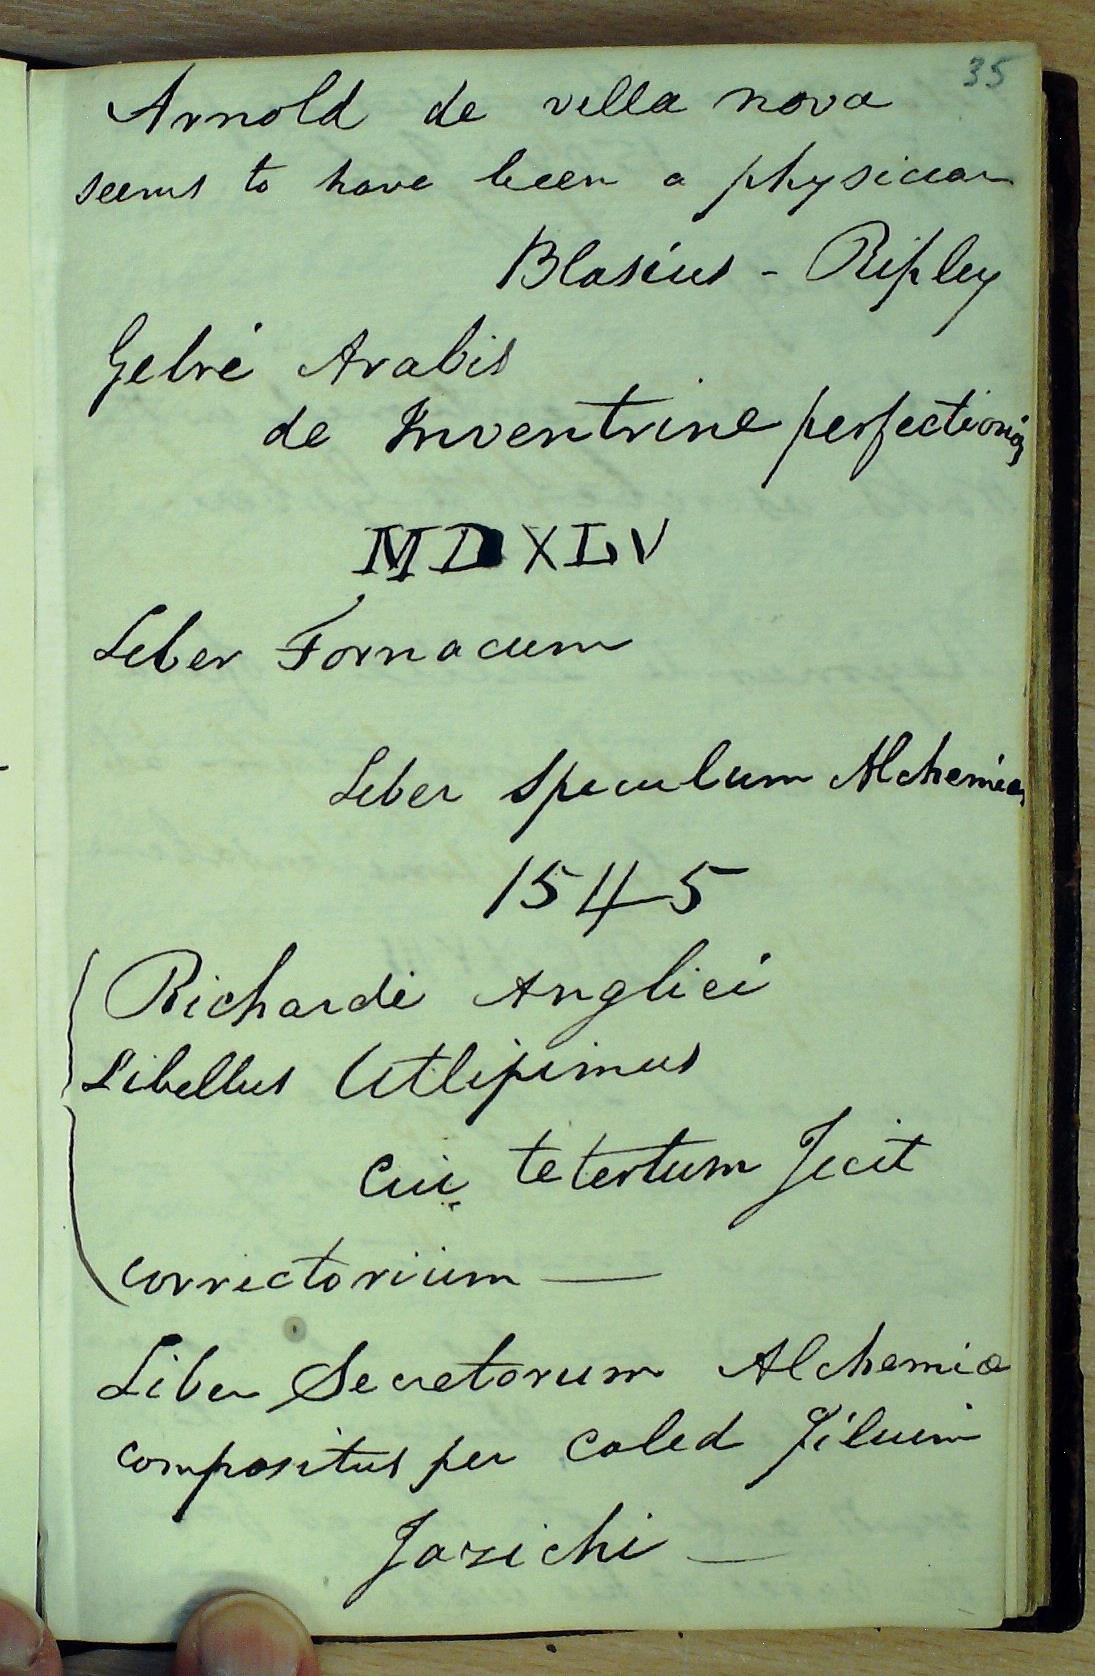 35
Arnold de villa nova
seems to have been a physician
Blasius - Ripley
Gebri Arabis
de Inventrine perfectionis
MDXLV
Liber Fornacum
Liber Speculum Alchemiae
1545
Richardi Anglici
Libellus Utlipimus
Cui tetertum fecit
correctorium —
Liber Secretorum Alchemiae
compositus per Caled filium
Jazichi —